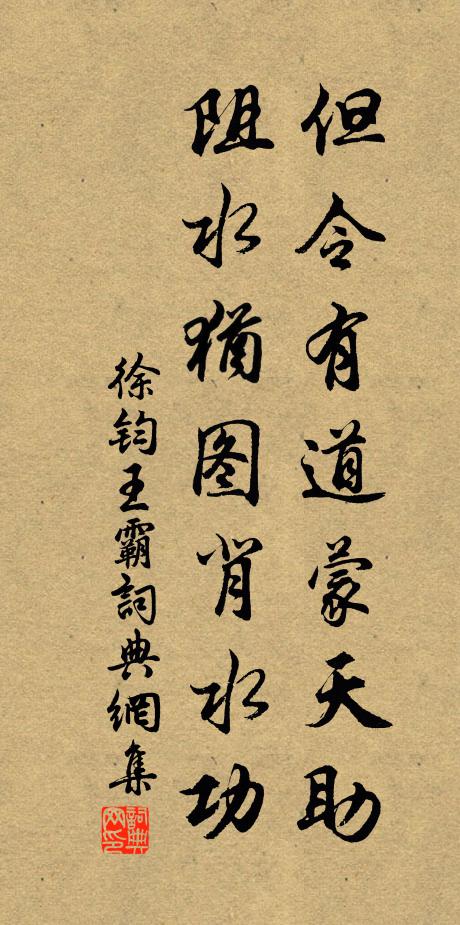 但令有道蒙天助
阻水犹图肖水功
徐钧王霸詞典網集
詞典网印